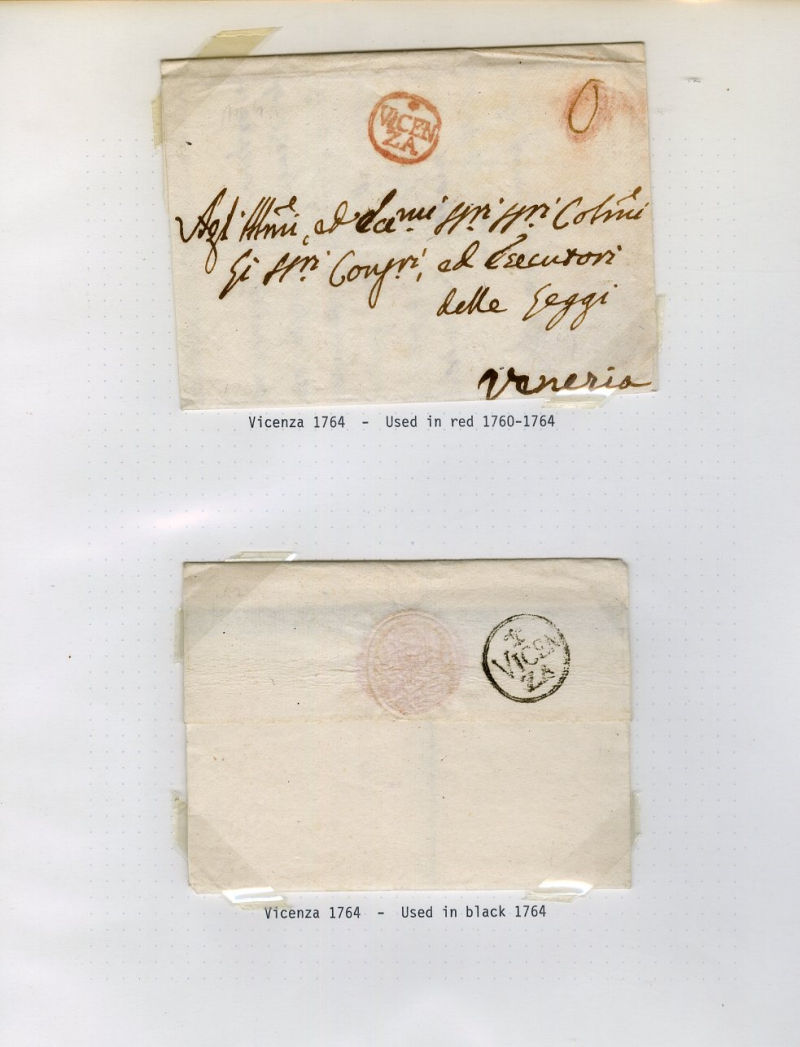 VICEN
ZA
0
Agl' Illmi, ed Ecc.mi SS.ri SS.ri Colmi
Gi SS.ri Cong.ri, ed Esecutori
delle Leggi
Veneria
Vicenza 1764 - Used in red 1760-1764
VICEN
ZA
Vicenza 1764 - Used in black 1764